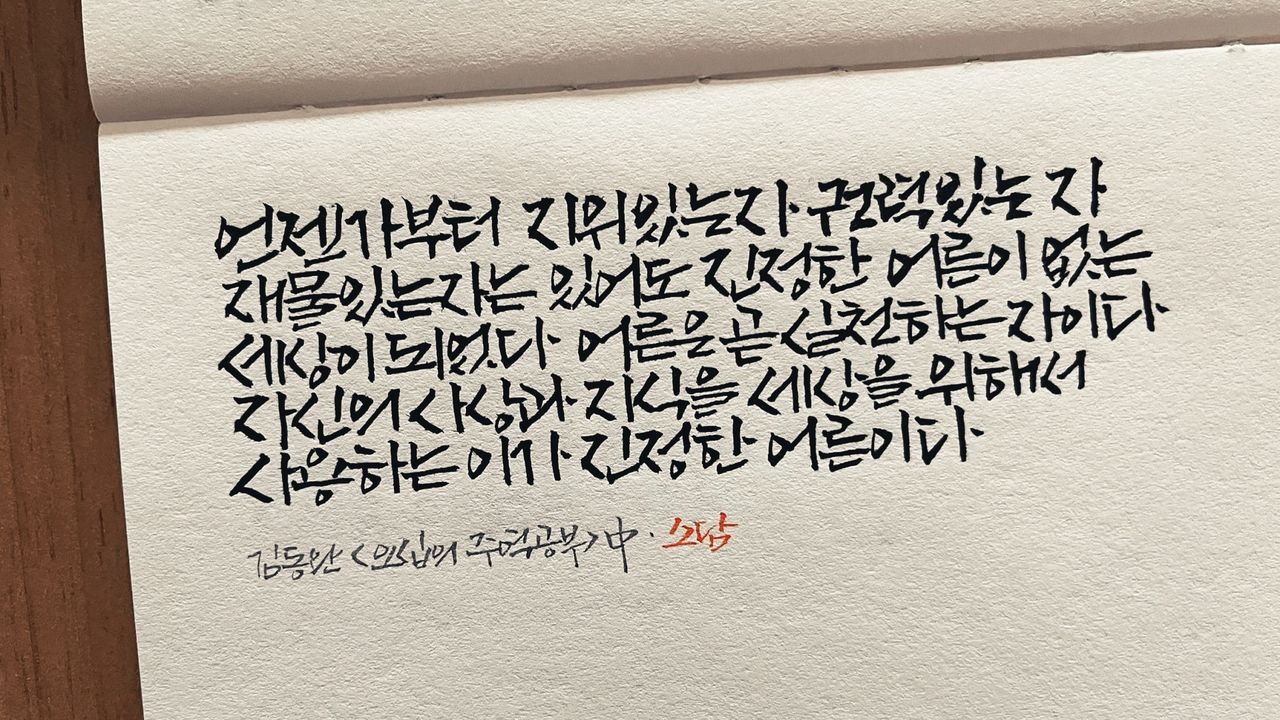 언젠가부터 지위있는자. 권력있는 자
재물있는자는 있어도 진정한 어른이 없는
세상이 되었다. 어른은 곧 실천하는 자이다.
자신의 사상과 지식을 세상을 위해서
사용하는 이가 진정한 어른이다.
김동완 <오십의 주역공부> 中. 소담